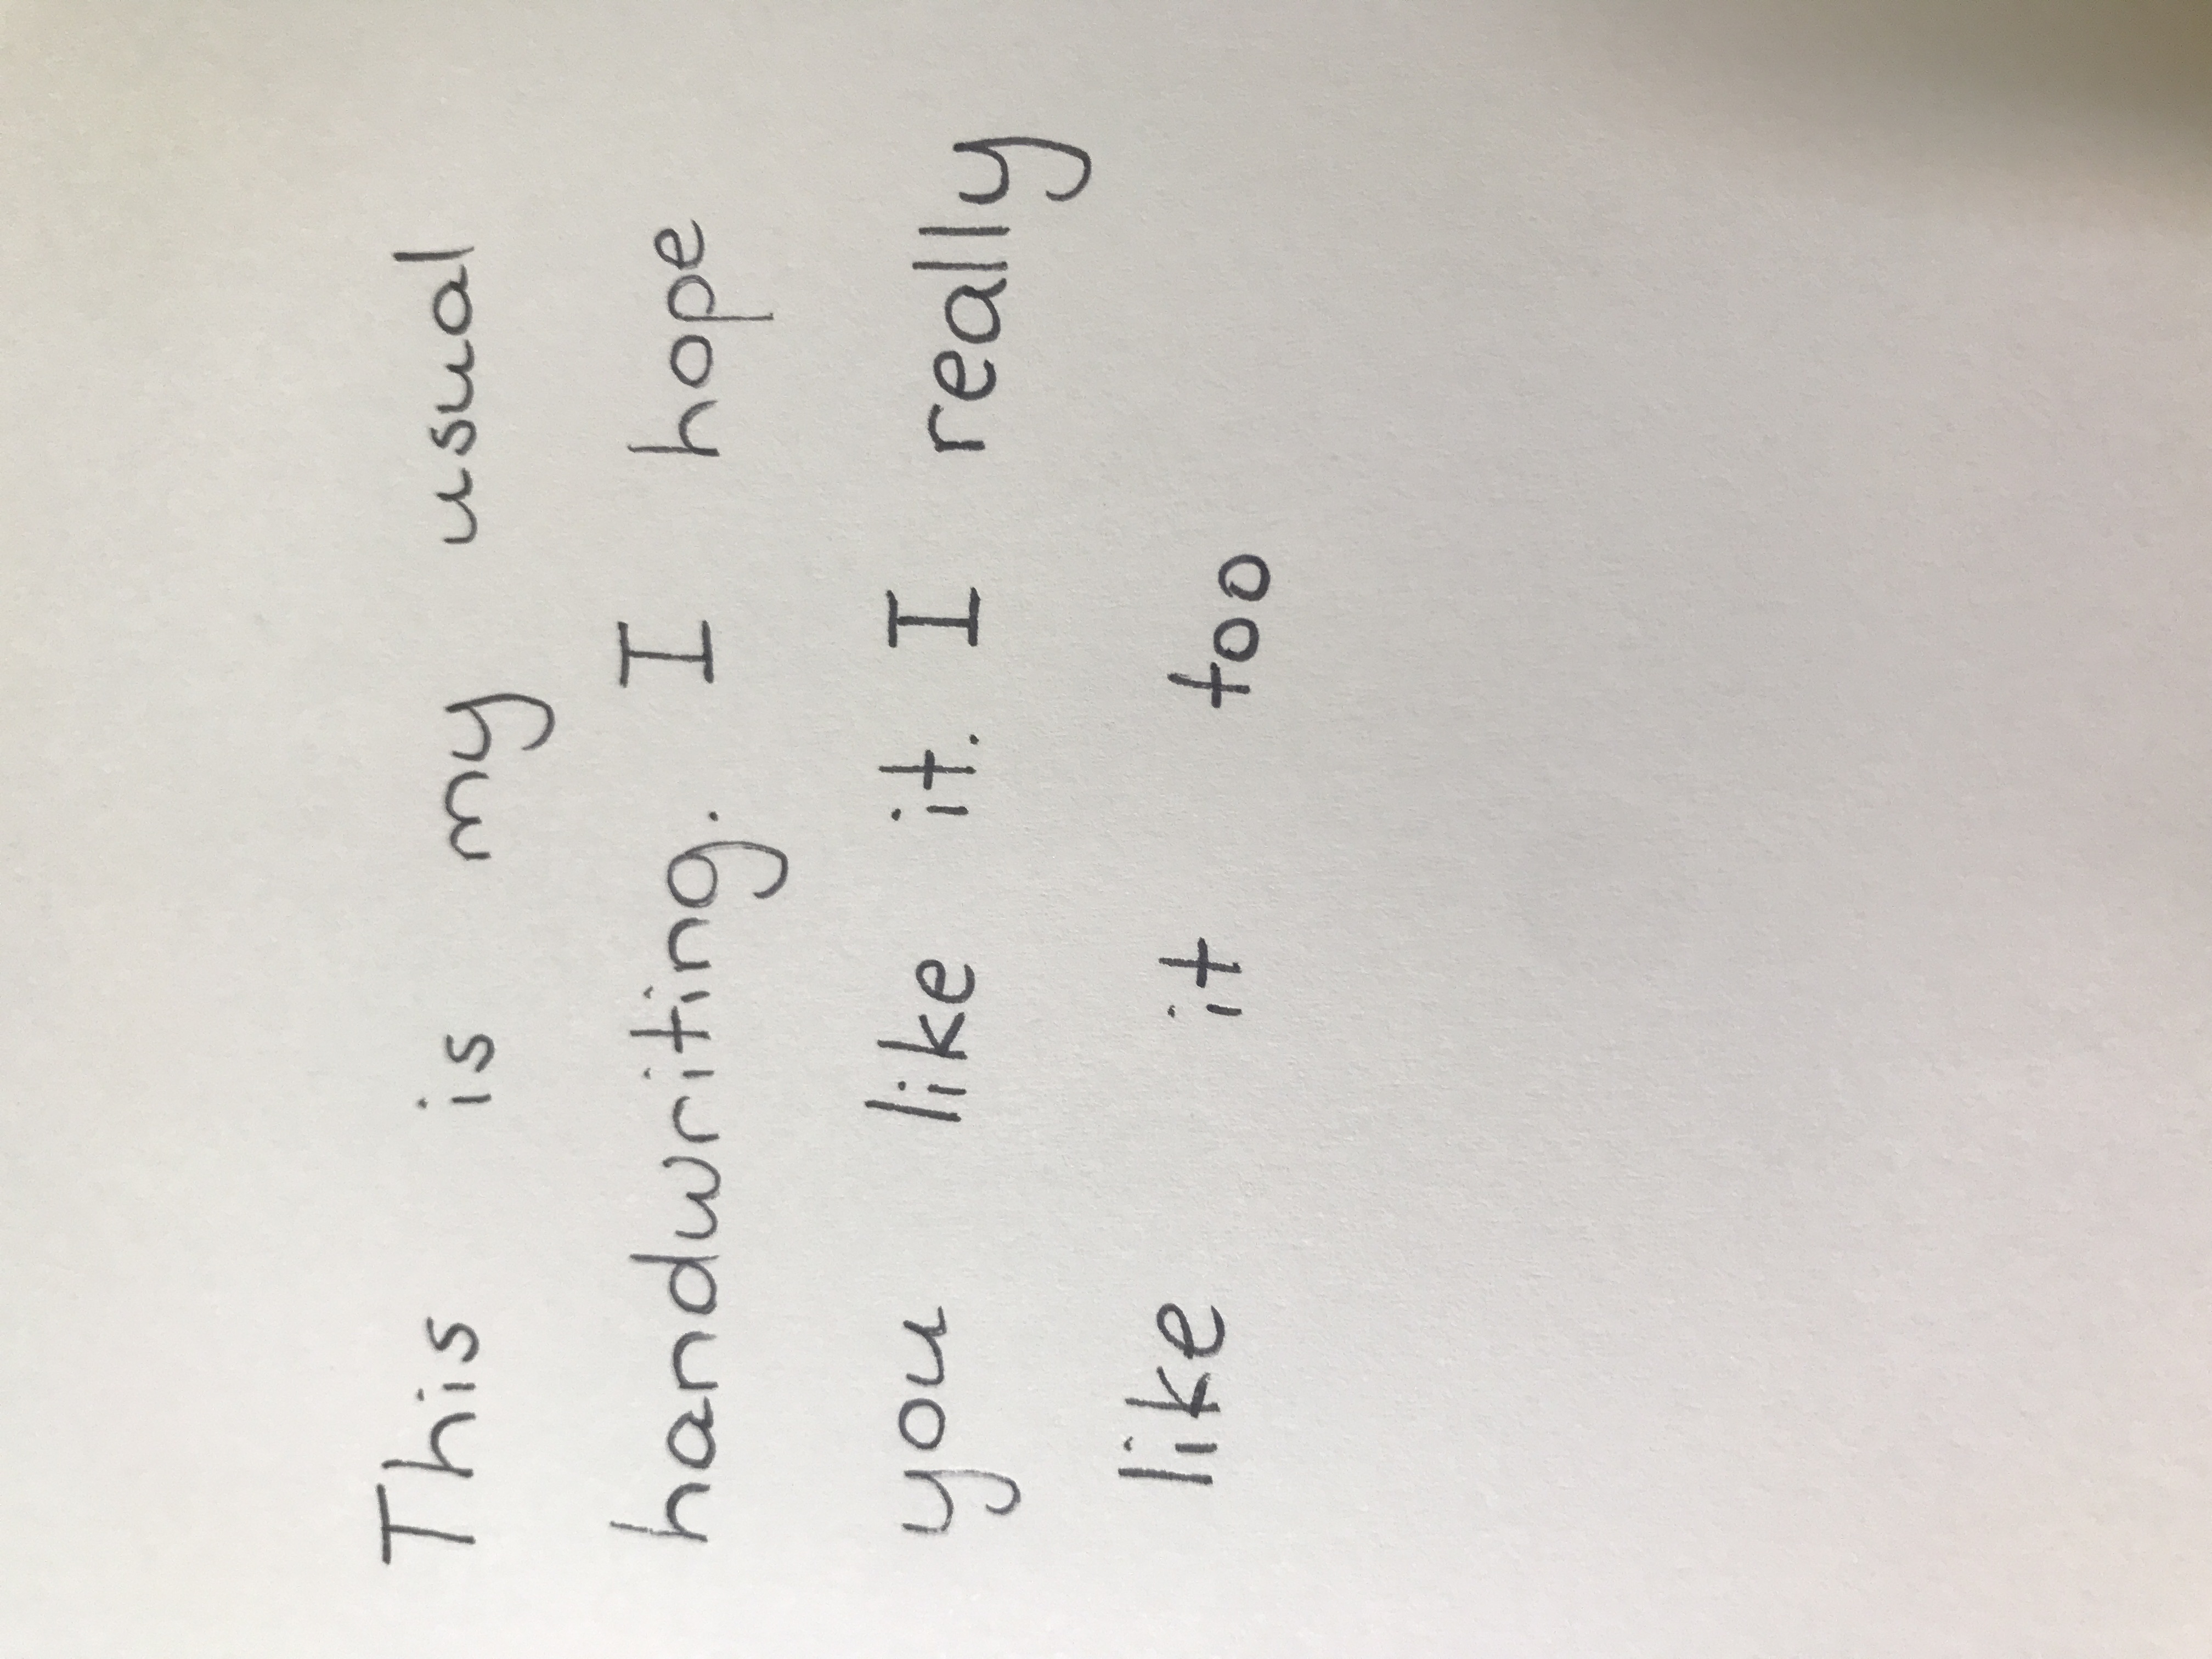 This is my usual
handwriting. I hope
you like it. I really
like it too